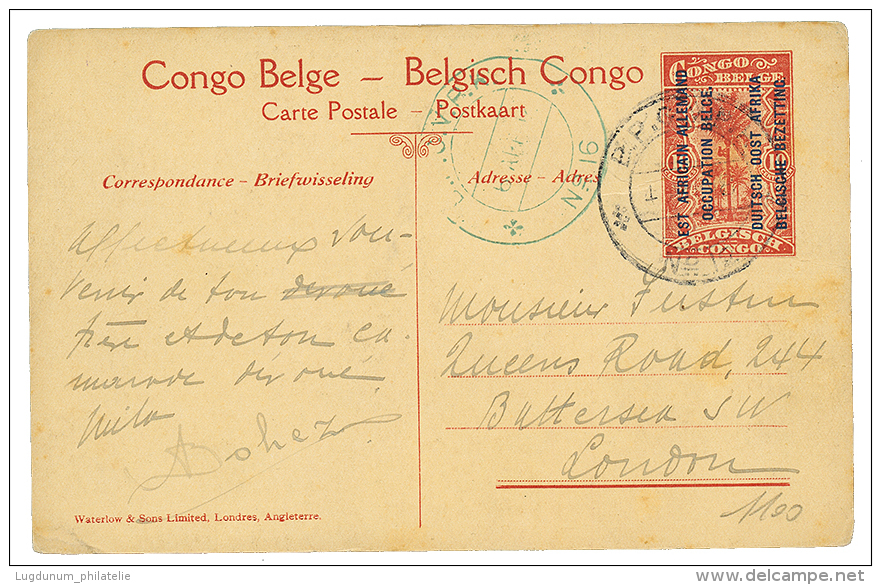 Congo Belge – Belgisch Congo
Carte Postale – Postkaart
Correspondance – Briefwisseling
Adresse – Adres
CONGO
BELGE
EST AFRICAIN ALLEMAND
OCCUPATION BELGE.
DUITSCH OOST AFRIKA
BELGISCHE BEZETTING.
BELGISCH
CONGO
Affectueux sou-
venir de ton devoué
frère et de ton ca-
marade dévoué
Monsieur
Queens Road, 244
Battersea SW
London
Waterlow & Sons Limited, Londres, Angleterre.
1100
Lugdunum_philatelie
www.delcampe.net